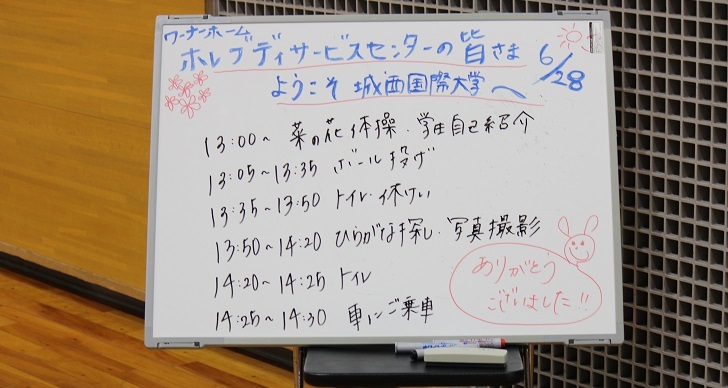 ワーナーホーム
ホレブデイサービスセンターの皆さま
6/28
ようこそ 城西国際大学へ
13:00~ 菜の花体操・学生自己紹介
13:05~13:35 ボール投げ
13:35~13:50 トイレ・休けい
13:50~14:20 ひらがな探し・写真撮影
14:20~14:25 トイレ
14:25~14:30 車にご乗車
ありがとう
ございました!!